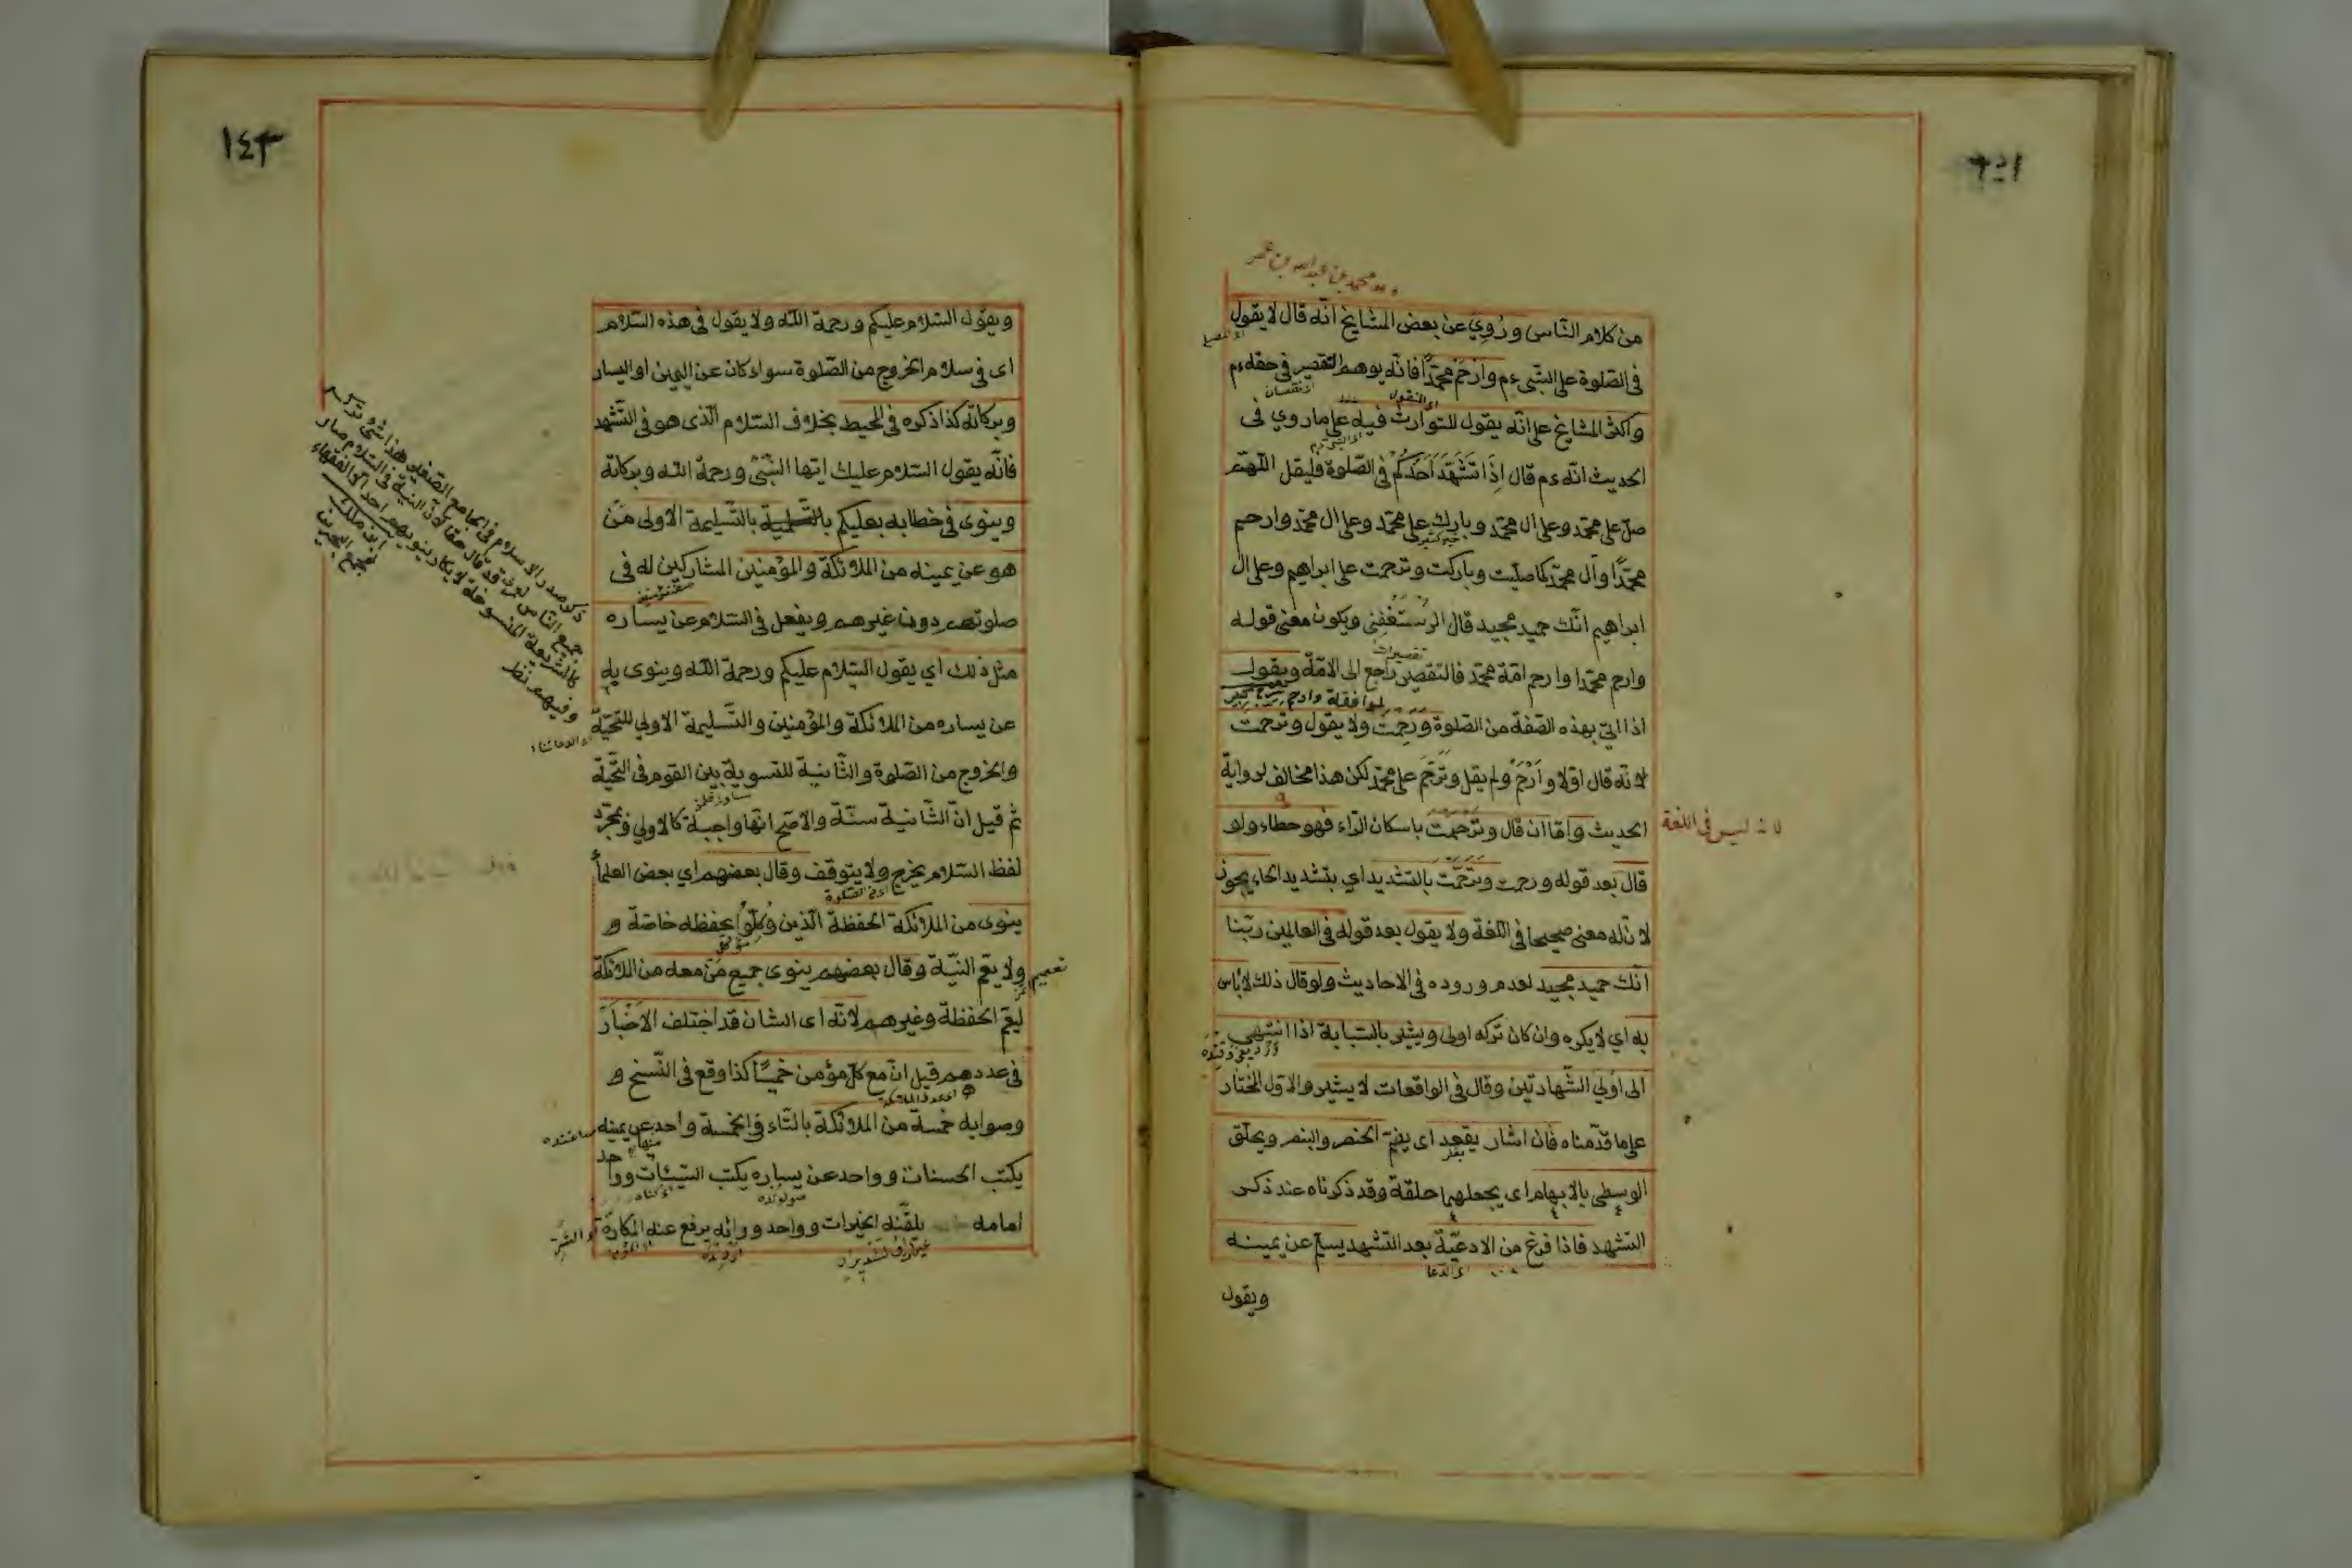 محمد بن عبد الله بن عمر
من كلام النّاس ورُوِيَ عن بعض المشايخ انّه قال لا يقول
فى الصّلوة على النّبي ءم وارْحَمْ محمّدًا فانّه يوهم التقصير فى حقه ءم
واكثر المشايخ على انّه يقول للتوارث فيه على ما روي فى
الحديث انّه ءم قال اِذَا تَشَهَّدَ اَحَدُكُمْ فى الصّلوة فليقل اللّهمّ
صلّ على محمّد وعلى ال محمّد وبارك على محمّد وعلى ال محمّد وارحم
محمّدًا وآل محمّد كما صلّيت وباركت وترحمت على ابراهيم وعلى ال
ابراهيم انّك حميد مجيد قال الرُّسْتُغْفِنى ويكون معنى قوله
وارحم محمّدا وارحم امّة محمّد فالتقصير راجع الى الامّة ويقول
اذا اتى بهذه الصّفة من الصّلوة ورَحِمْتَ ولا يقول وترحمت
لانّه قال اوّلا وارْحَمْ ولم يقل وتَرَحَّمْ على محمّد لكن هذا مخالف لرواية
الحديث وامّا ان قال وتَرْحَمْتَ باسكان الرّاء فهو خطاء ولو
لانه ليس فى اللغة
قال بعد قوله ورحمت وتَرَحَّمْتَ بالتشديد اي بتشديد الحاء يجوز
لانّ له معنى صحيحا فى اللّغة ولا يقول بعد قوله فى العالمين ربّنا
انّك حميد مجيد لعدم وروده فى الاحاديث ولو قال ذلك لا بأس
به اي لا يكره وان كان تركه اولى ويشير بالسّبّابة اذا انتهى
الى اولى الشّهادتين وقال فى الواقعات لا يشير والاوّل المختار
على ما قدّمناه فان اشار يعقد اى يضمّ الخنصر والبنصر ويحلّق
الوسطى بالابهام اى يجعلهما حلقة وقد ذكرناه عند ذكر
التشهد فاذا فرغ من الادعيّة بعد التشهد يسلّم عن يمينه
ويقول
١٤٣
ويقول السّلام عليكم ورحمة اللّه ولا يقول فى هذه السّلام
اى فى سلام الخروج من الصّلوة سواء كان عن اليمين او اليسار
وبركاته كذا ذكره فى المحيط بخلاف السّلام الّذى هو فى التّشهد
فانّه يقول السّلام عليك ايّها النّبيّ ورحمة اللّه وبركاته
وينوى فى خطابه بعليكم بالتّسليمة بالتّسليمة الاولى مَنْ
هو عن يمينه من الملائكة والمؤمنين المشاركين له فى
صلوتهم دون غيرهم ويفعل فى السّلام عن يساره
مثل ذلك اي يقول السّلام عليكم ورحمة اللّه وينوى به
عن يساره من الملائكة والمؤمنين والتّسليمة الاولى للتحيّة
والخروج من الصّلوة والثّانية للتسوية بين القوم فى التّحيّة
ثم قيل انّ الثّانية سنّة والاصحّ انّها واجبة كالاولى وبمجرّد
لفظ السّلام يخرج ولا يتوقف وقال بعضهم اي بعض العلماء
ينوى من الملائكة الحفظة الّذين وُكِّلُوا بحفظه خاصّة و
ولا يعمّ النيّة وقال بعضهم ينوى جميع مَنْ معه من الملائكة
تعميم
ليعمّ الحفظة وغيرهم لانّه اى الشّان قد اختلف الاخبار
فى عددهم قيل انّ مع كلّ مؤمن خمسًا كذا وقع فى النّسخ و
وصوابه خمسة من الملائكة بالتّاء فى الخمسة واحد عن يمينه
يكتب الحسنات وواحد عن يساره يكتب السّيّئات وواحد
امامه يلقّنه الخيرات وواحد ورائه يرفع عنه المكاره
ذكر صدر الاسلام فى الجامع الصّغير هذا شئ تركه
جميع النّاس
كالشّريعة المنسوخة
وفيهم نظر
ابن ملك
لمجمع البحرين